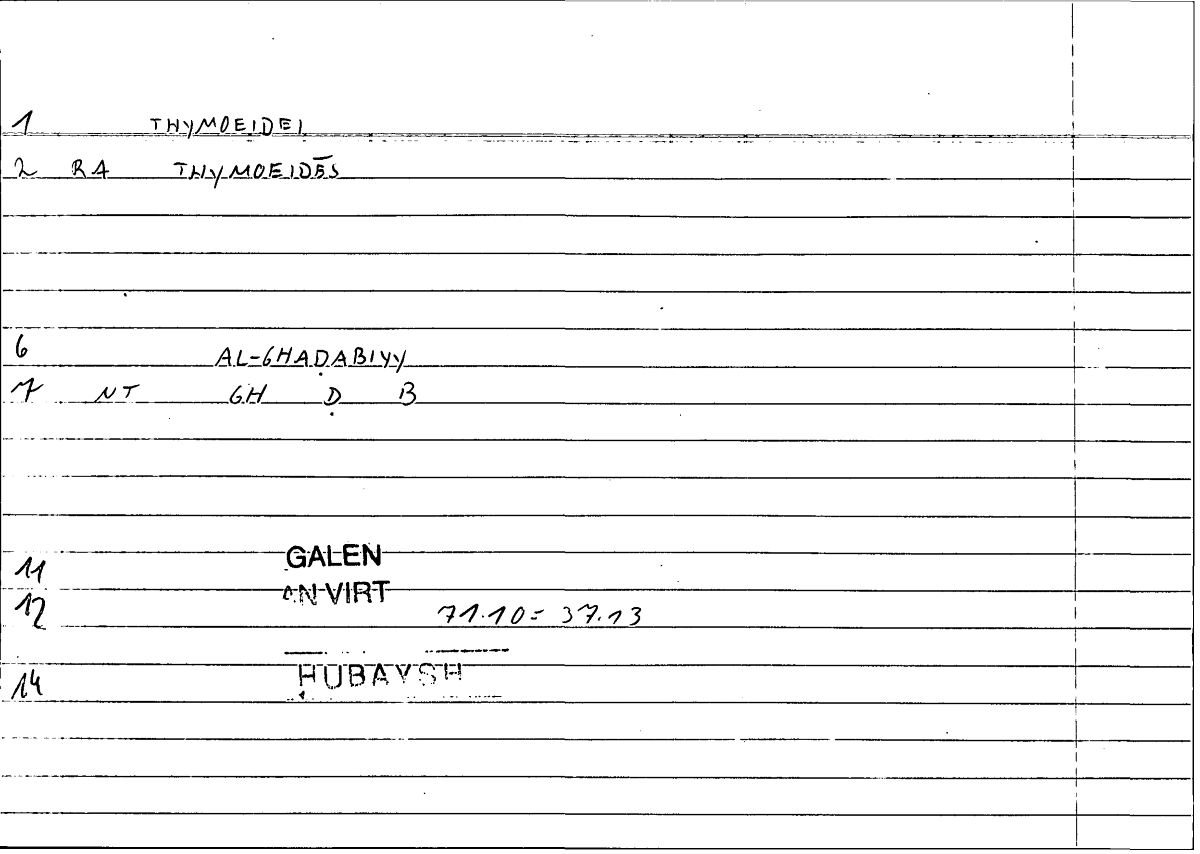 1 THYMOEIDEI
2 RA THYMOEIDĒS
6 AL-GHAḌABIYY
7 NT GH Ḍ B
11 GALEN
12 AN VIRT 71.10 = 37.13
14 ḤUBAYSH